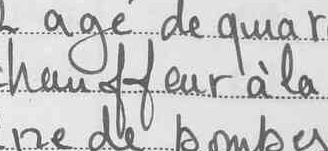 agé de quar
hauffeur à la
ne de pompes